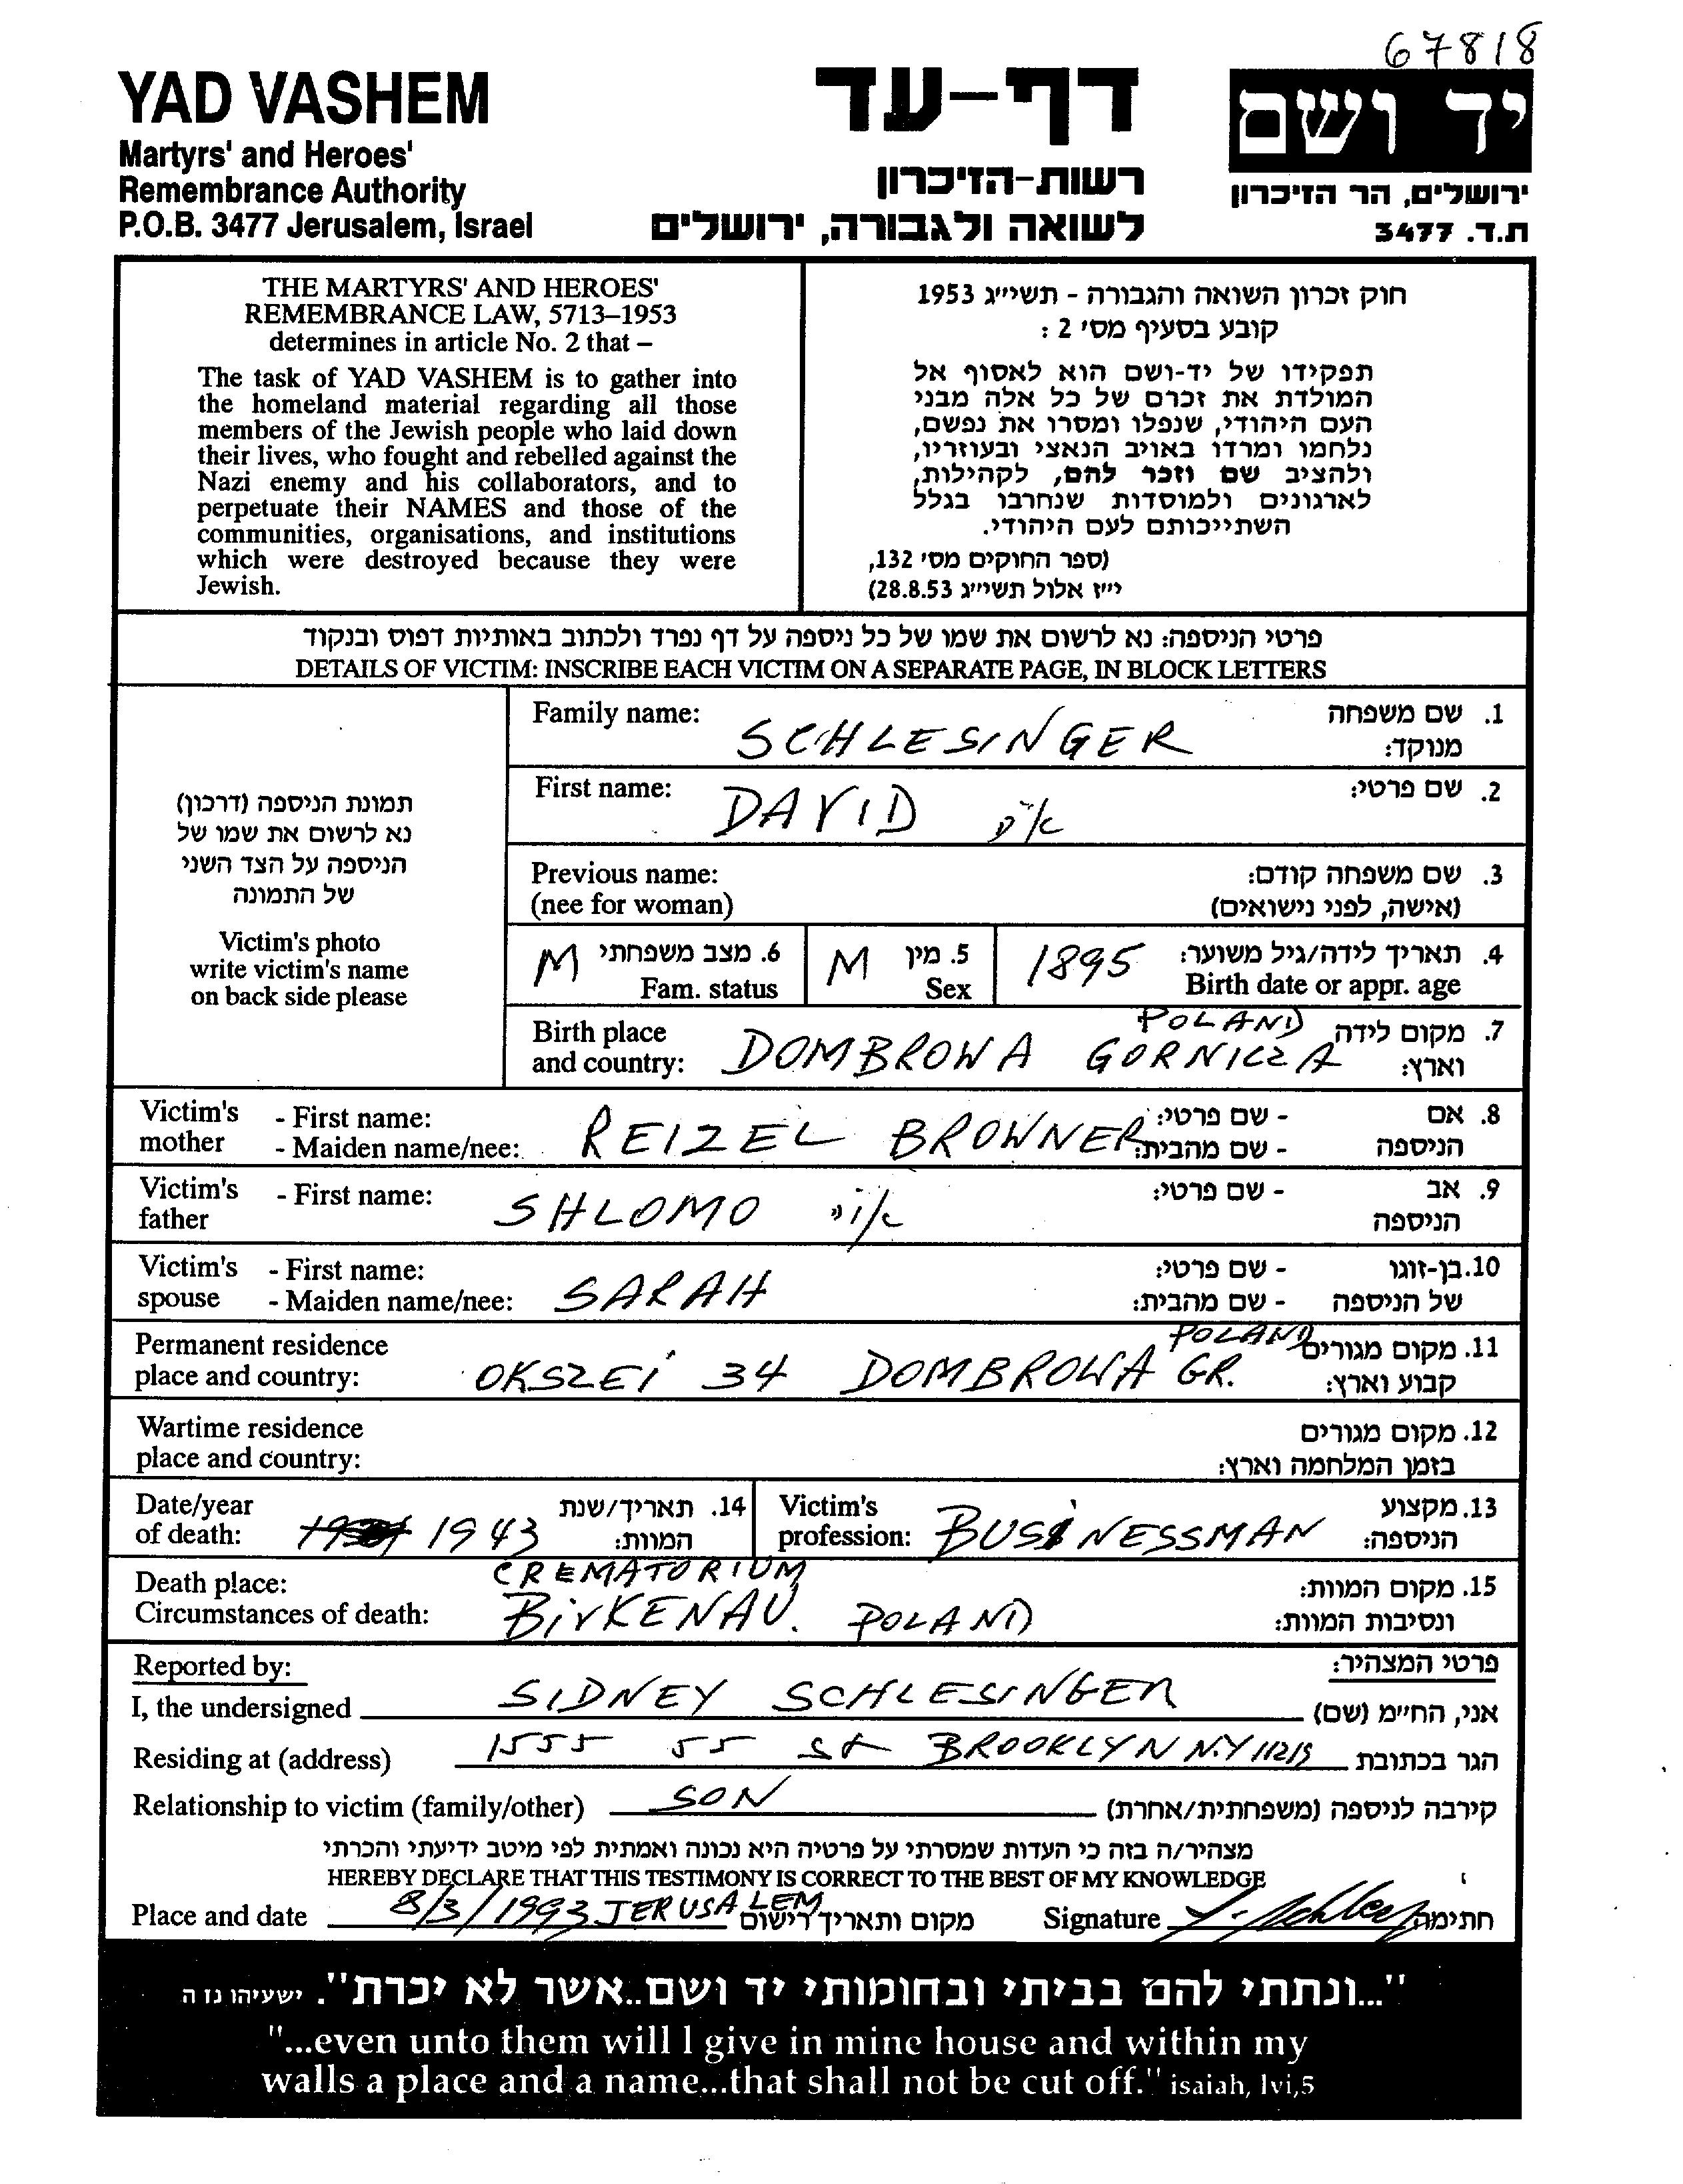 67818
YAD VASHEM
Martyrs' and Heroes'
Remembrance Authority
P.O.B. 3477 Jerusalem, Israel
דף-עד
רשות-הזיכרון
לשואה ולגבורה, ירושלים
יד ושם
ירושלים, הר הזיכרון
ת.ד. 3477
THE MARTYRS' AND HEROES'
REMEMBRANCE LAW, 5713–1953
determines in article No. 2 that –
The task of YAD VASHEM is to gather into
the homeland material regarding all those
members of the Jewish people who laid down
their lives, who fought and rebelled against the
Nazi enemy and his collaborators, and to
perpetuate their NAMES and those of the
communities, organisations, and institutions
which were destroyed because they were
Jewish.
חוק זכרון השואה והגבורה - תשי״ג 1953
קובע בסעיף מס׳ 2 :
תפקידו של יד-ושם הוא לאסוף אל
המולדת את זכרם של כל אלה מבני
העם היהודי, שנפלו ומסרו את נפשם,
נלחמו ומרדו באויב הנאצי ובעוזריו,
ולהציב שם וזכר להם, לקהילות,
לארגונים ולמוסדות שנחרבו בגלל
השתייכותם לעם היהודי.
(ספר החוקים מס׳ 132,
י״ז אלול תשי״ג 28.8.53)
פרטי הניספה: נא לרשום את שמו של כל ניספה על דף נפרד ולכתוב באותיות דפוס ובנקוד
DETAILS OF VICTIM: INSCRIBE EACH VICTIM ON A SEPARATE PAGE, IN BLOCK LETTERS
תמונת הניספה (דרכון)
נא לרשום את שמו של
הניספה על הצד השני
של התמונה
Victim's photo
write victim's name
on back side please
Family name: SCHLESINGER 1. שם משפחה
מנוקד:
First name: DAVID 2. שם פרטי:
Previous name: 3. שם משפחה קודם:
(nee for woman) (אישה, לפני נישואים)
M 6. מצב משפחתי M 5. מין 1895 4. תאריך לידה/גיל משוער:
Fam. status Sex Birth date or appr. age
Birth place POLAND 7. מקום לידה
and country: DOMBROWA GORNICZA וארץ:
Victim's - First name: - שם פרטי: 8. אם
mother - Maiden name/nee: REIZEL BROWNER - שם מהבית: הניספה
Victim's - First name: SHLOMO - שם פרטי: 9. אב
father הניספה
Victim's - First name: - שם פרטי: 10. בן-זוגו
spouse - Maiden name/nee: SARAH - שם מהבית: של הניספה
Permanent residence POLAND 11. מקום מגורים
place and country: OKSZEi 34 DOMBROWA GR. קבוע וארץ:
Wartime residence 12. מקום מגורים
place and country: בזמן המלחמה וארץ:
Date/year 14. תאריך/שנת Victim's 13. מקצוע
of death: 1943 המוות: profession: BUSINESSMAN הניספה:
Death place: CREMATORIUM 15. מקום המוות:
Circumstances of death: BirKENAU. POLAND ונסיבות המוות:
Reported by: פרטי המצהיר:
I, the undersigned SIDNEY SCHLESINGER אני, הח״מ (שם)
Residing at (address) 1555 55 st BROOKLYN N.Y 11219 הגר בכתובת
Relationship to victim (family/other) SON קירבה לניספה (משפחתית/אחרת)
מצהיר/ה בזה כי העדות שמסרתי על פרטיה היא נכונה ואמתית לפי מיטב ידיעתי והכרתי
HEREBY DECLARE THAT THIS TESTIMONY IS CORRECT TO THE BEST OF MY KNOWLEDGE
Place and date 8/3/1993 JERUSALEM מקום ותאריך רישום Signature חתימה
"...ונתתי להם בביתי ובחומותי יד ושם..אשר לא יכרת". ישעיהו נו ה
"...even unto them will I give in mine house and within my
walls a place and a name...that shall not be cut off." isaiah, lvi,5